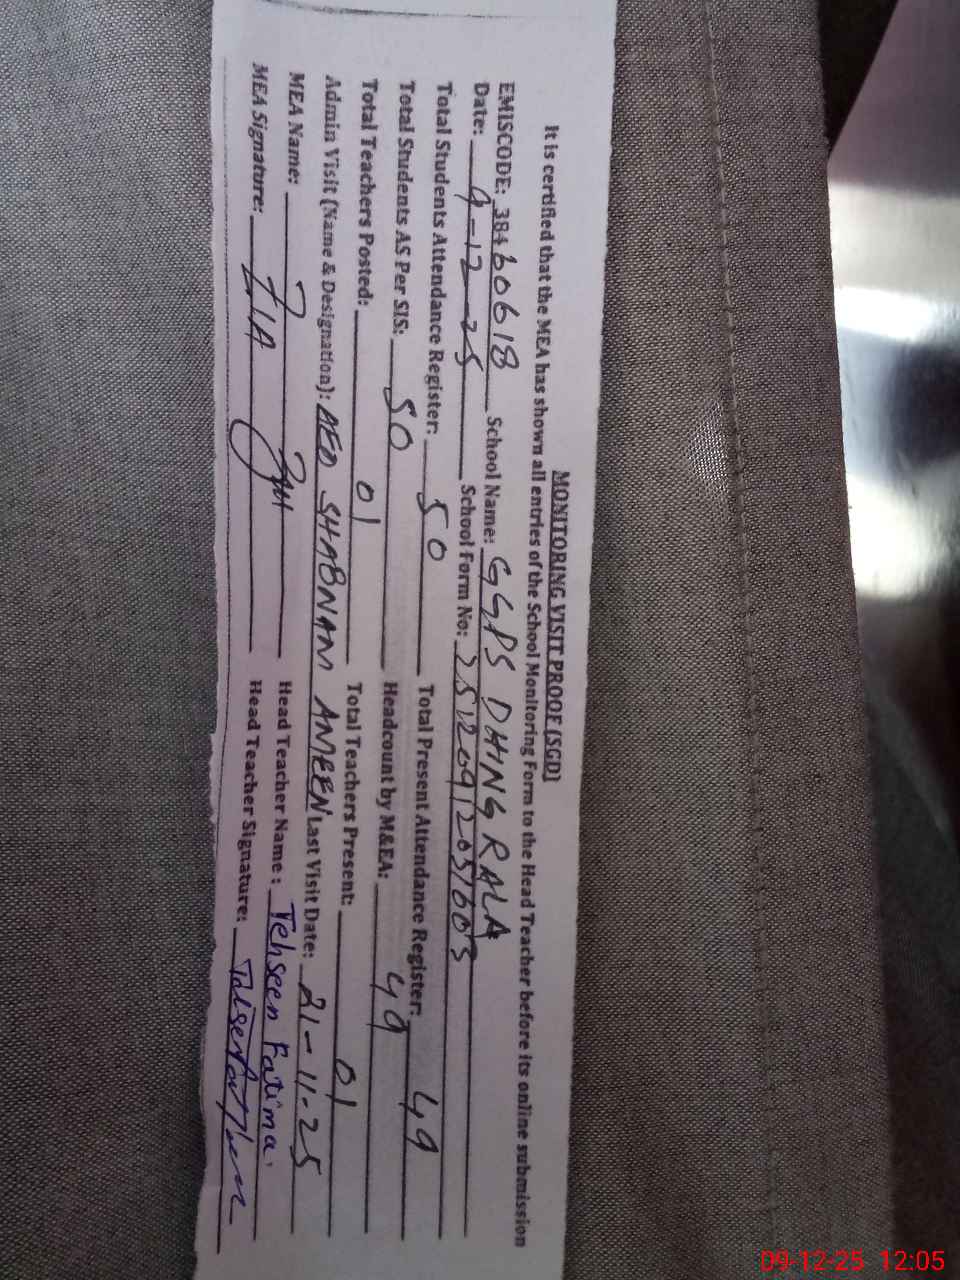 MONITORING VISIT PROOF (SGD)
It is certified that the MEA has shown all entries of the School Monitoring Form to the Head Teacher before its online submission
EMISCODE: 38460618 School Name: GGPS DHING RALA
Date: 9-12-25 School Form No: 25120912051603
Total Students Attendance Register: 50 Total Present Attendance Register: 49
Total Students AS Per SIS: 50 Headcount by M&EA: 49
Total Teachers Posted: 01 Total Teachers Present: 01
Admin Visit (Name & Designation): AEO SHABNAM AMEEN Last Visit Date: 21-11-25
MEA Name: ZIA Head Teacher Name: Tehseen Fatima.
MEA Signature: Head Teacher Signature:
09-12-25 12:05